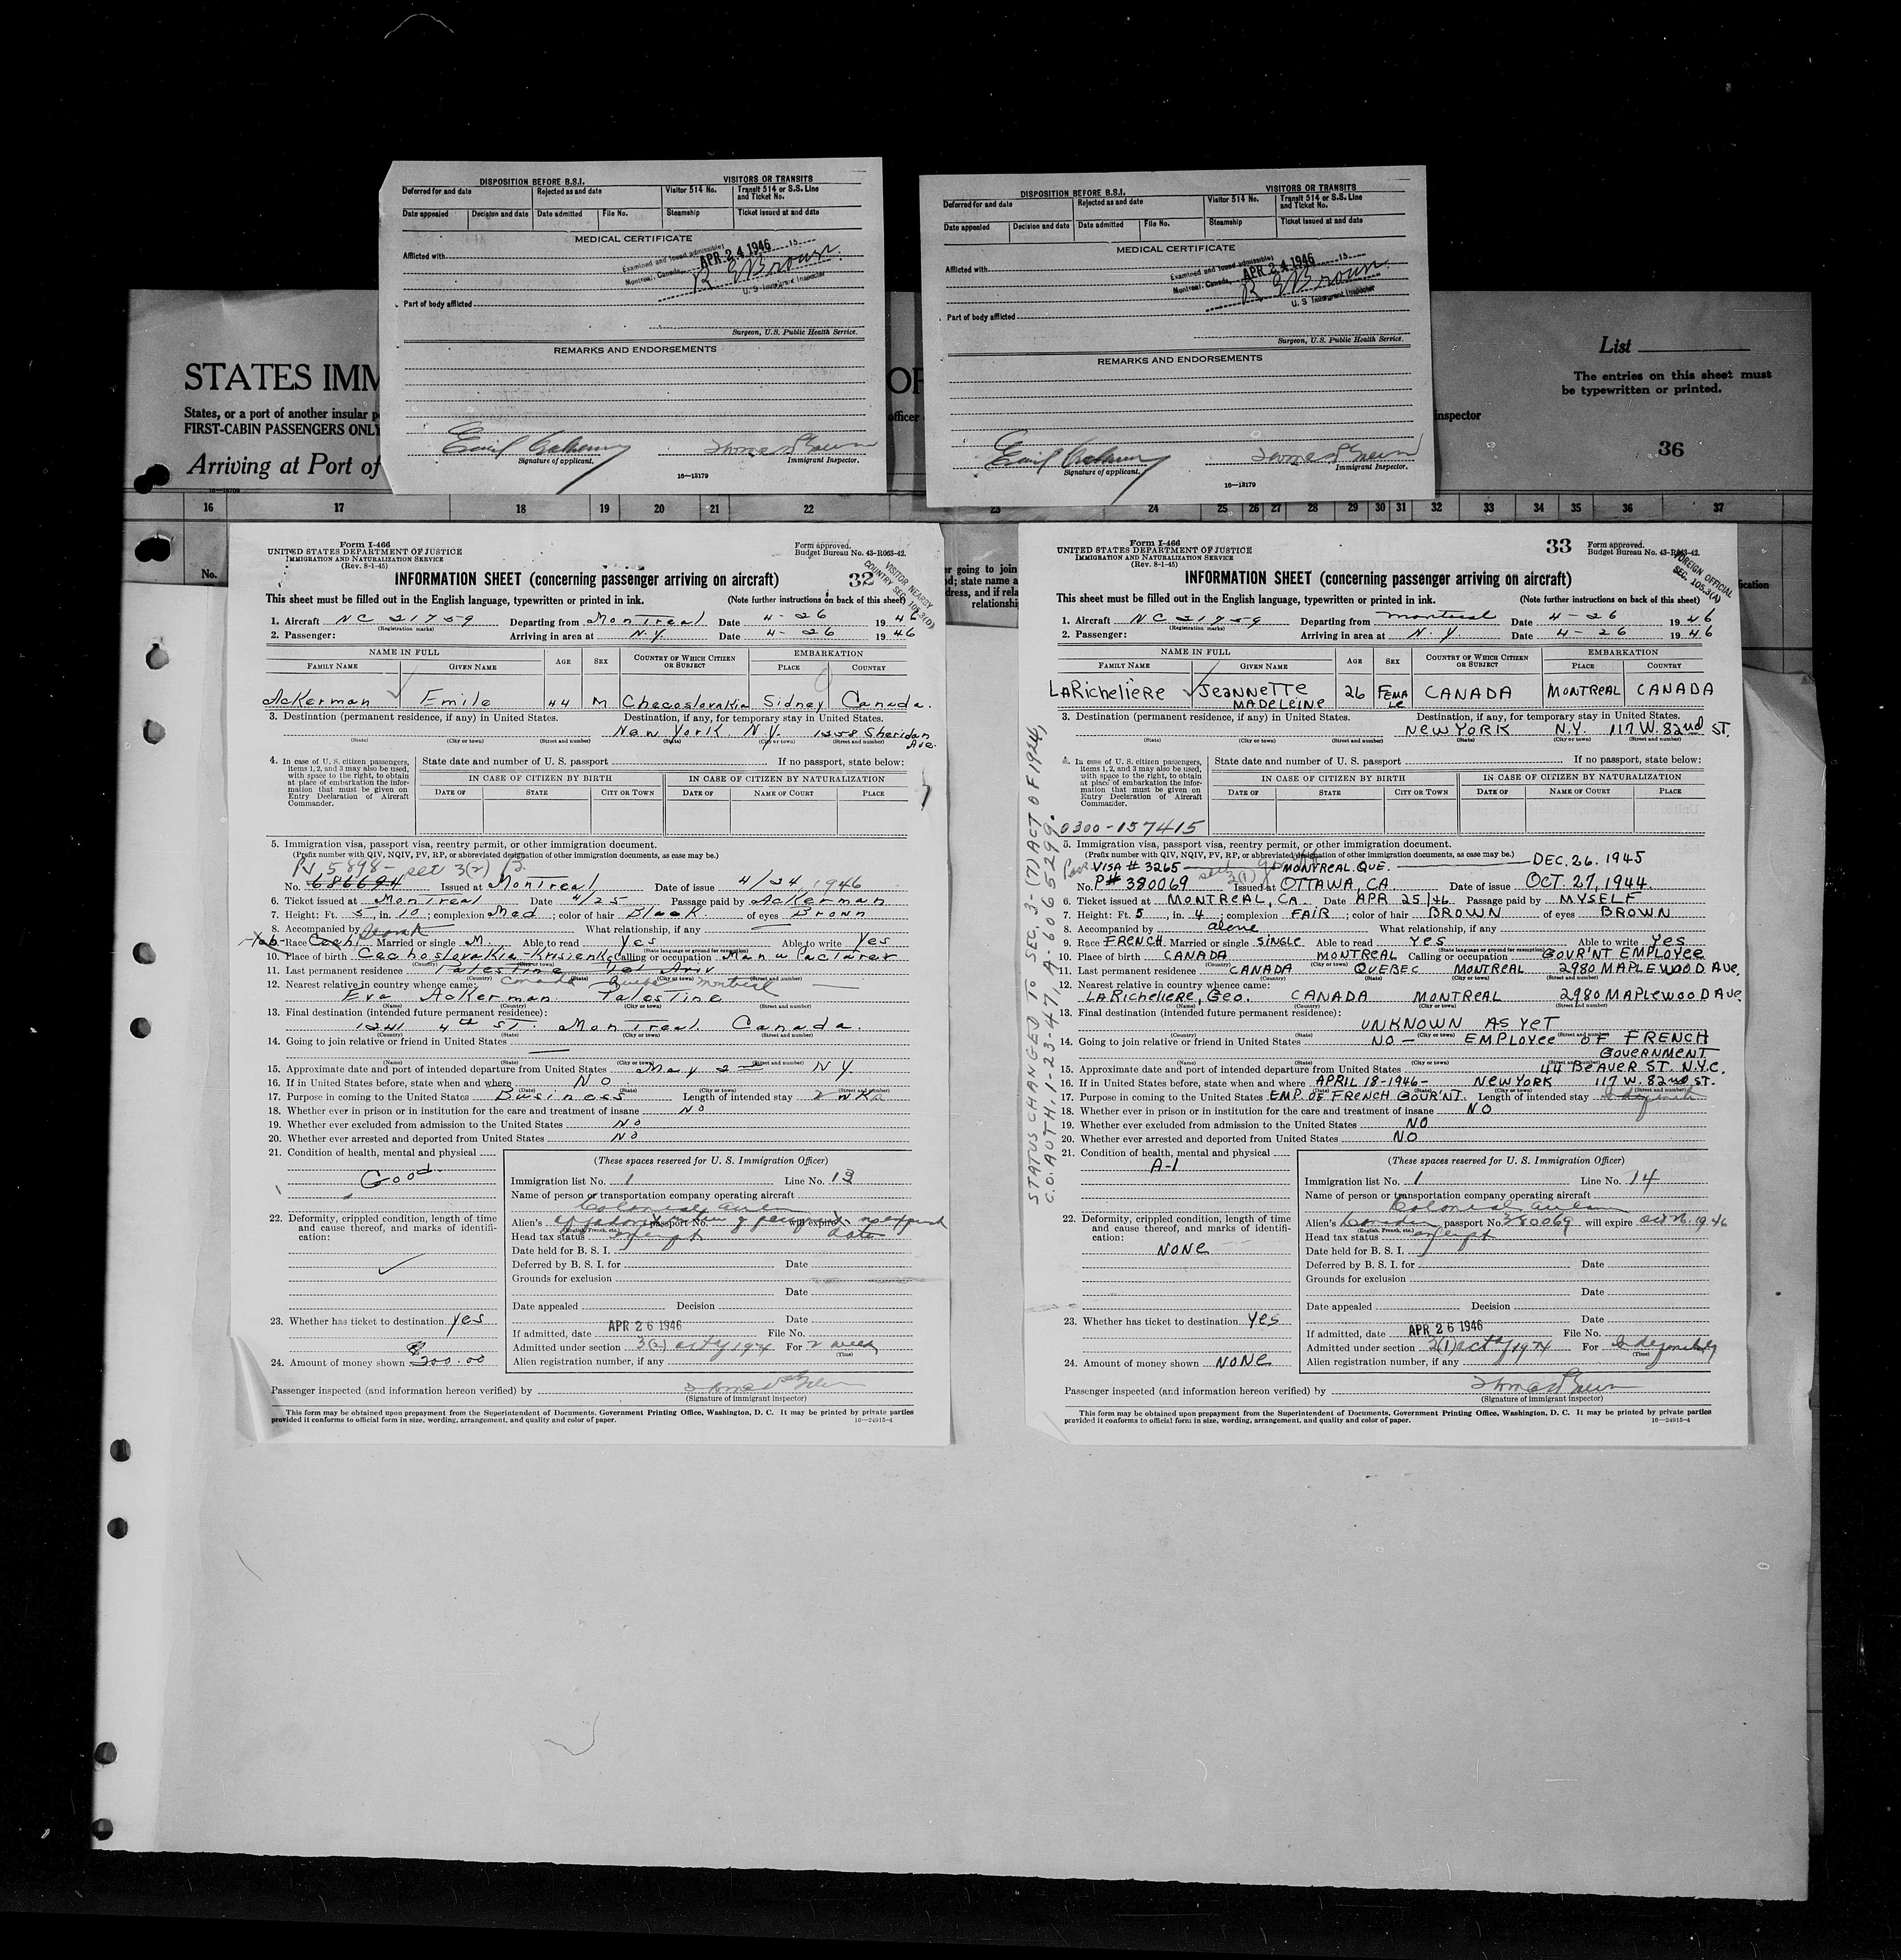 DISPOSITION BEFORE B.S.I. VISITORS OR TRANSITS
Deferred for and date Rejected as and date Visitor 514 No. Transit 514 or S.S. Line and Ticket No.
Date appealed Decision and date Date admitted File No. Steamship Ticket issued at and date
MEDICAL CERTIFICATE
Examined and found admissible:
Afflicted with
Montreal, Canada, APR 24 1946
R E Brown
U. S. Immigrant Inspector
Part of body afflicted
Surgeon, U.S. Public Health Service.
REMARKS AND ENDORSEMENTS
Signature of applicant. Immigrant Inspector.
16—13179
DISPOSITION BEFORE B.S.I. VISITORS OR TRANSITS
Deferred for and date Rejected as and date Visitor 514 No. Transit 514 or S.S. Line and Ticket No.
Date appealed Decision and date Date admitted File No. Steamship Ticket issued at and date
MEDICAL CERTIFICATE
Examined and found admissible:
Afflicted with
Montreal, Canada, APR 24 1946
R E Brown
U. S. Immigrant Inspector
Part of body afflicted
Surgeon, U.S. Public Health Service.
REMARKS AND ENDORSEMENTS
Signature of applicant. Immigrant Inspector.
16—13179
List
STATES IMM
The entries on this sheet must
be typewritten or printed.
States, or a port of another insular p officer inspector
FIRST-CABIN PASSENGERS ONLY
Arriving at Port of
36
16 17 18 19 20 21 22 23 24 25 26 27 28 29 30 31 32 33 34 35 36 37
No.
Form I-466
UNITED STATES DEPARTMENT OF JUSTICE
IMMIGRATION AND NATURALIZATION SERVICE
(Rev. 8-1-45)
Form approved.
Budget Bureau No. 43-R063-42.
INFORMATION SHEET (concerning passenger arriving on aircraft) 32
VISITOR NEARBY
COUNTRY SEC.
This sheet must be filled out in the English language, typewritten or printed in ink. (Note further instructions on back of this sheet)
1. Aircraft NC 21759 Departing from Montreal Date 4-26 1946
(Registration marks)
2. Passenger: Arriving in area at N.Y. Date 4-26 1946
NAME IN FULL AGE SEX COUNTRY OF WHICH CITIZEN OR SUBJECT EMBARKATION
FAMILY NAME GIVEN NAME PLACE COUNTRY
Ackerman Emile 44 M Checoslovakia Sidney Canada.
3. Destination (permanent residence, if any) in United States. Destination, if any, for temporary stay in United States.
New York N.Y. 1258 Sheridan Ave.
(State) (City or town) (Street and number) (State) (City or town) (Street and number)
4. In case of U. S. citizen passengers, items 1, 2, and 3 may also be used, with space to the right, to obtain at place of embarkation the information that must be given on Entry Declaration of Aircraft Commander.
State date and number of U. S. passport If no passport, state below:
IN CASE OF CITIZEN BY BIRTH IN CASE OF CITIZEN BY NATURALIZATION
DATE OF STATE CITY OR TOWN DATE OF NAME OF COURT PLACE
5. Immigration visa, passport visa, reentry permit, or other immigration document.
(Prefix number with QIV, NQIV, PV, RP, or abbreviated designation of other immigration documents, as case may be.)
PV 5898- sec 3(2)
No. 686694 Issued at Montreal Date of issue 4/24, 1946
6. Ticket issued at Montreal Date 4/25 Passage paid by Ackerman
7. Height: Ft. 5, in. 10; complexion Med; color of hair Black of eyes Brown
8. Accompanied by What relationship, if any
9. Race Married or single M. Able to read yes Able to write yes
(State language or ground for exemption)
10. Place of birth Cechoslovakia - Calling or occupation Manufacturer
(Country) (City or town) (State)
11. Last permanent residence Palestine Tel Aviv
(Country) (State) (City or town) (Street and number)
Canada Quebec Montreal
12. Nearest relative in country whence came:
Eva Ackerman. Palestine
(Name) (Country) (City or town) (Street and number)
13. Final destination (intended future permanent residence):
1241 4th ST. Montreal Canada.
(Country) (State) (City or town) (Street and number)
14. Going to join relative or friend in United States
(Name) (State) (City or town) (Street and number)
15. Approximate date and port of intended departure from United States May 2nd NY.
16. If in United States before, state when and where No
(Date) (State) (City or town) (Street and number)
17. Purpose in coming to the United States Business Length of intended stay 2 wks
18. Whether ever in prison or in institution for the care and treatment of insane No
19. Whether ever excluded from admission to the United States No
20. Whether ever arrested and deported from United States No
21. Condition of health, mental and physical
Good
(These spaces reserved for U. S. Immigration Officer)
Immigration list No. 1 Line No. 13
Name of person or transportation company operating aircraft
22. Deformity, crippled condition, length of time and cause thereof, and marks of identification:
Alien's passport No. will expire
(English, French, etc.)
Head tax status exempt
Date held for B. S. I.
Deferred by B. S. I. for Date
Grounds for exclusion
Date
Date appealed Decision
23. Whether has ticket to destination yes
Date
If admitted, date APR 26 1946 File No.
Admitted under section 3(2) For 2 weeks
(Time)
24. Amount of money shown $200.00
Alien registration number, if any
Passenger inspected (and information hereon verified) by
(Signature of immigrant inspector)
This form may be obtained upon prepayment from the Superintendent of Documents, Government Printing Office, Washington, D. C. It may be printed by private parties
provided it conforms to official form in size, wording, arrangement, and quality and color of paper. 16—24915-4
Form I-466
UNITED STATES DEPARTMENT OF JUSTICE
IMMIGRATION AND NATURALIZATION SERVICE
(Rev. 8-1-45)
33
Form approved.
Budget Bureau No. 43-R063-42.
FOREIGN OFFICIAL
SEC. 105.3(A)
INFORMATION SHEET (concerning passenger arriving on aircraft)
This sheet must be filled out in the English language, typewritten or printed in ink. (Note further instructions on back of this sheet)
1. Aircraft NC 21759 Departing from Montreal Date 4-26 1946
(Registration marks)
2. Passenger: Arriving in area at N.Y. Date 4-26 1946
NAME IN FULL AGE SEX COUNTRY OF WHICH CITIZEN OR SUBJECT EMBARKATION
FAMILY NAME GIVEN NAME PLACE COUNTRY
LARicheliere JeANNeTTe MADELEINE 26 FEMALE CANADA MONTREAL CANADA
3. Destination (permanent residence, if any) in United States. Destination, if any, for temporary stay in United States.
NEW YORK N.Y. 117 W. 82nd ST.
(State) (City or town) (Street and number) (State) (City or town) (Street and number)
4. In case of U. S. citizen passengers, items 1, 2, and 3 may also be used, with space to the right, to obtain at place of embarkation the information that must be given on Entry Declaration of Aircraft Commander.
State date and number of U. S. passport If no passport, state below:
IN CASE OF CITIZEN BY BIRTH IN CASE OF CITIZEN BY NATURALIZATION
DATE OF STATE CITY OR TOWN DATE OF NAME OF COURT PLACE
0300-157415
STATUS CHANGED TO SEC. 3-(7) ACT OF 1924,
C.O. AUTH. 1-23-47, A-6065299.
5. Immigration visa, passport visa, reentry permit, or other immigration document.
(Prefix number with QIV, NQIV, PV, RP, or abbreviated designation of other immigration documents, as case may be.)
VISA # 3265 MONTREAL. QUE. DEC. 26. 1945
No. P# 380069 Issued at OTTAWA, CA. Date of issue OCT. 27, 1944.
6. Ticket issued at MONTREAL, CA. Date APR 25/46 Passage paid by MYSELF
7. Height: Ft. 5, in. 4; complexion FAIR; color of hair BROWN of eyes BROWN
8. Accompanied by alone What relationship, if any
9. Race FRENCH Married or single SINGLE Able to read YES Able to write YES
(State language or ground for exemption)
10. Place of birth CANADA MONTREAL Calling or occupation GOUR'NT EMPLOYEE
(Country) (City or town) (State)
11. Last permanent residence CANADA QUEBEC MONTREAL 2980 MAPLEWOOD AVE.
(Country) (State) (City or town) (Street and number)
12. Nearest relative in country whence came:
LARicheliere, Geo. CANADA MONTREAL 2980 MAPLEWOOD AVE.
(Name) (Country) (City or town) (Street and number)
13. Final destination (intended future permanent residence):
UNKNOWN AS YET
(Country) (State) (City or town) (Street and number)
14. Going to join relative or friend in United States NO - EMPLOYEE OF FRENCH GOVERNMENT
(Name) (State) (City or town) (Street and number)
15. Approximate date and port of intended departure from United States 44 BEAVER ST. N.Y.C.
16. If in United States before, state when and where APRIL 18-1946- NEW YORK 117 W. 82nd ST.
(Date) (State) (City or town) (Street and number)
17. Purpose in coming to the United States EMP. OF FRENCH GOUR'NT. Length of intended stay Indefinite
18. Whether ever in prison or in institution for the care and treatment of insane NO
19. Whether ever excluded from admission to the United States NO
20. Whether ever arrested and deported from United States NO
21. Condition of health, mental and physical
A-1
(These spaces reserved for U. S. Immigration Officer)
Immigration list No. 1 Line No. 14
Name of person or transportation company operating aircraft
22. Deformity, crippled condition, length of time and cause thereof, and marks of identification:
NONE
Alien's Canadian passport No. 380069 will expire 1946
(English, French, etc.)
Head tax status exempt
Date held for B. S. I.
Deferred by B. S. I. for Date
Grounds for exclusion
Date
Date appealed Decision
23. Whether has ticket to destination YES
Date
If admitted, date APR 26 1946 File No.
Admitted under section 3(1) For Indefinitely
(Time)
24. Amount of money shown NONE
Alien registration number, if any
Passenger inspected (and information hereon verified) by
(Signature of immigrant inspector)
This form may be obtained upon prepayment from the Superintendent of Documents, Government Printing Office, Washington, D. C. It may be printed by private parties
provided it conforms to official form in size, wording, arrangement, and quality and color of paper. 16—24915-4